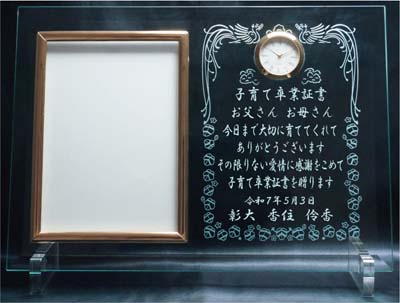 子育て卒業証書
お父さん お母さん
今日まで大切に育ててくれて
ありがとうございます
その限りない愛情に感謝をこめて
子育て卒業証書を贈ります
令和7年5月3日
彰大 香住 伶香